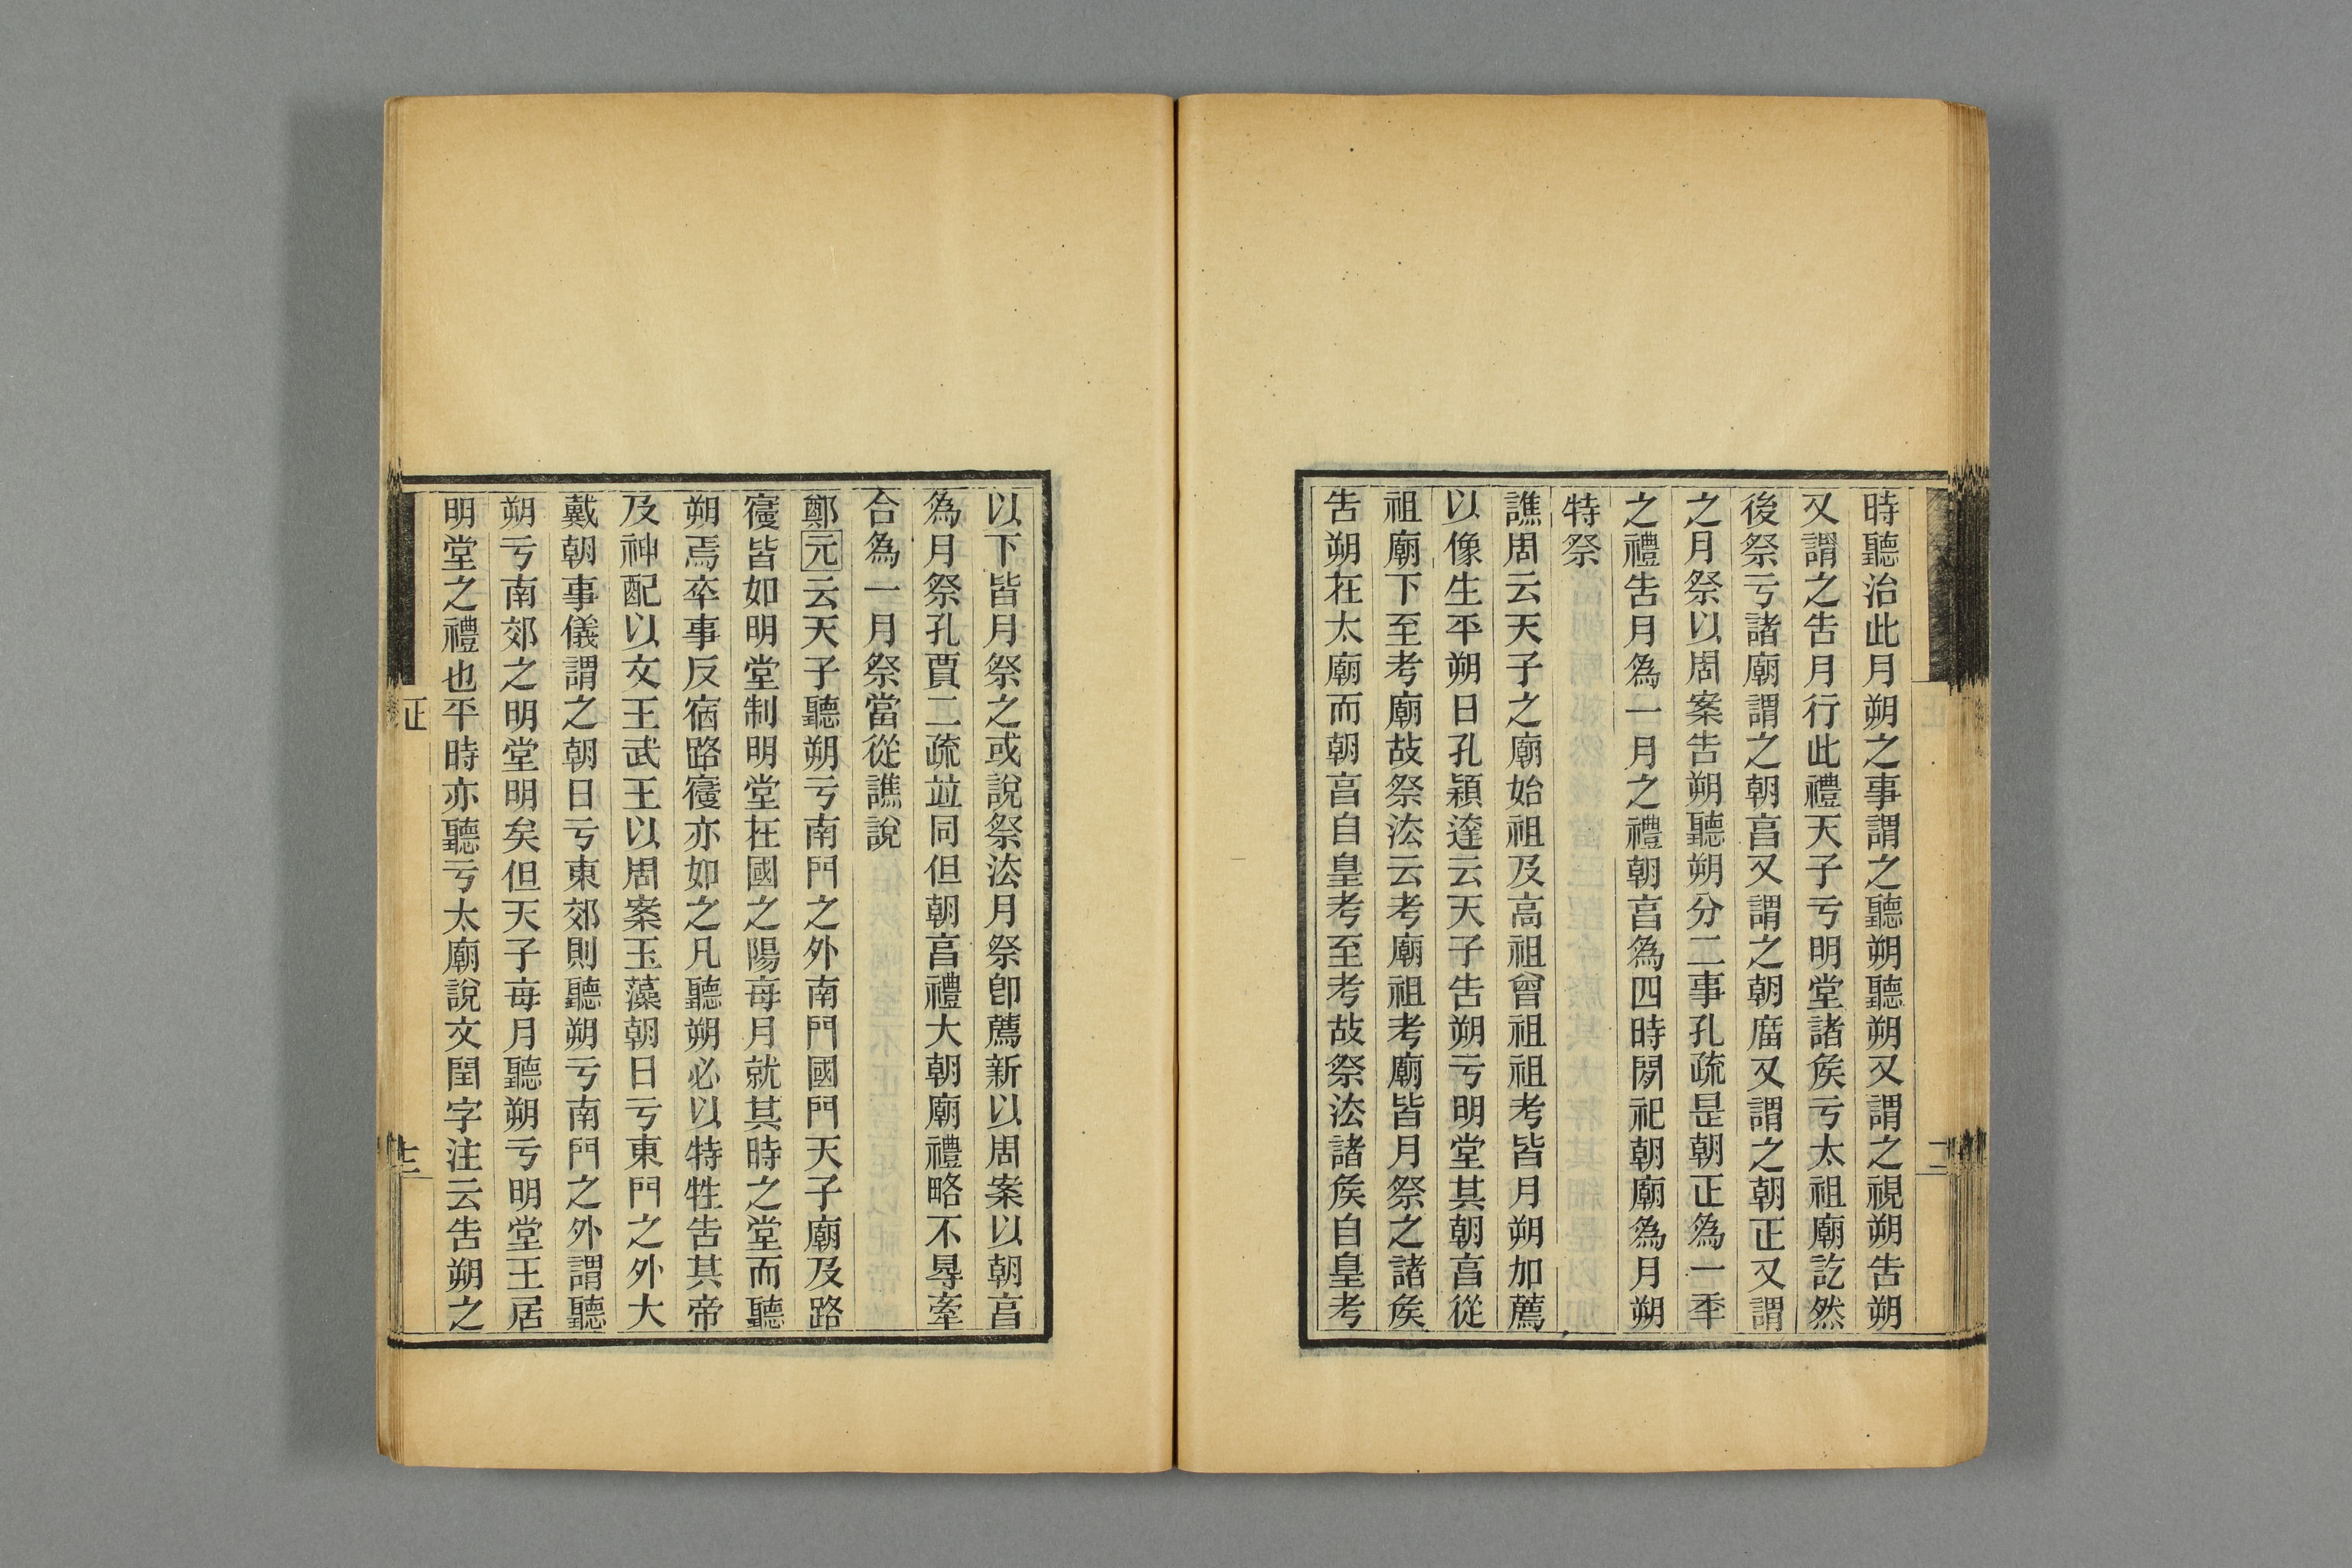 時聽治此月朔之事謂之聽朔聽朔又謂之視朔告朔
又謂之告月行此禮天子亏明堂諸矦亏太祖廟訖然
後祭亏諸廟謂之朝亯又謂之朝庿又謂之朝正又謂
之月祭以周案告朔聽朔分二事孔疏是朝正爲一秊
之禮告月爲一月之禮朝亯爲四時閒祀朝廟爲月朔
特祭
譙周云天子之廟始祖及高祖曾祖祖考皆月朔加薦
以像生平朔日孔穎達云天子告朔亏明堂其朝亯從
祖廟下至考廟故祭法云考廟祖考廟皆月祭之諸矦
告朔在太廟而朝亯自皇考至考故祭法諸矦自皇考
以下皆月祭之或說祭法月祭卽薦新以周案以朝亯
爲月祭孔賈二疏並同但朝亯禮大朝廟禮略不㝵牽
合爲一月祭當從譙說
鄭元云天子聽朔亏南門之外南門國門天子廟及路
寢皆如明堂制明堂在國之陽每月就其時之堂而聽
朔焉卒事反宿路寢亦如之凡聽朔必以特牲告其帝
及神配以文王武王以周案玉藻朝日亏東門之外大
戴朝事儀謂之朝日亏東郊則聽朔亏南門之外謂聽
朔亏南郊之明堂明矣但天子每月聽朔亏明堂王居
明堂之禮也平時亦聽亏太廟說文閏字注云告朔之
正
十三